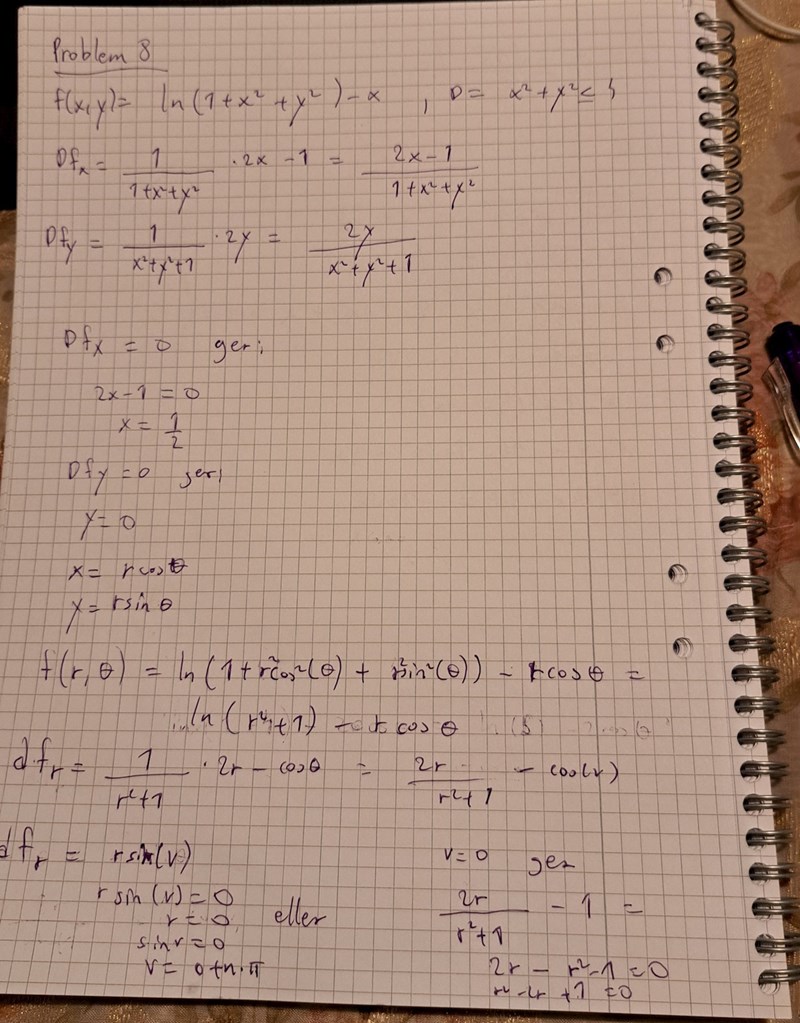 Problem 8
f(x,y) = ln(1+x²+y²)-x , D = x²+y² ≤
Dfₓ = 1/(1+x²+y²) · 2x - 1 = (2x-1)/(1+x²+y²)
Dfy = 1/(x²+y²+1) · 2y = 2y/(x²+y²+1)
Dfx = 0 ger;
2x-1 = 0
x = 1/2
Dfy = 0 ger;
y = 0
x = rcosθ
y = rsin θ
f(r, θ) = ln(1+r²cos²(θ) + r²sin²(θ)) - rcosθ =
ln(r²+1) - r cos θ
dfr = 1/(r²+1) · 2r - cosθ = 2r/(r²+1) - cos(v)
dfr = rsin(v)
r sin(v) = 0
r = 0 eller
sinv = 0
v = 0+n·π
v=0 ger
2r/(r²+1) - 1 =
2r - r²-1 = 0
r²-2r+1 = 0